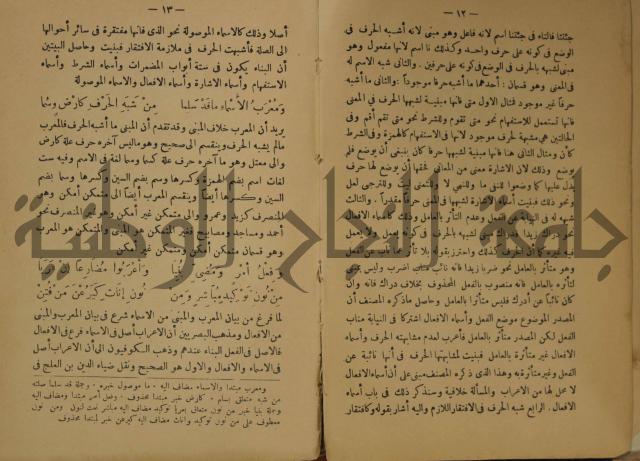 — ١٢ —
جئتنا فالتاء فى جئتنا اسم لانه فاعل وهو مبنى لانه أشبه الحرف فى
الوضع فى كونه على حرف واحد وكذلك نا اسم لانها مفعول وهو
مبنى لشبهه بالحرف فى الوضع فى كونه على حرفين . والثانى شبه الاسم له
فى المعنى وهو قسمان : أحدهما ما أشبه حرفا موجوداً : والثانى ما أشبه
حرفا غير موجود فمثال الاول متى فانها مبنية لشبهها الحرف فى المعنى
فانها تستعمل للاستفهام نحو متى تقوم وللشرط نحو متى تقم أقم وفى
الحالتين هى مشبهة لحرف موجود لانها فى الاستفهام كالهمزة وفى الشرط
كان ومثال الثانى هنا فانها مبنية لشبهها حرفا كان ينبغى أن يوضع فلم
يوضع وذلك لان الاشارة معنى من المعانى فحقها أن يوضع لها حرف
يدل عليها كما وضعوا للنفى ما وللنهى لا وللتمنى ليت وللترجى لعل
ونحو ذلك فبنيت أسماء الاشارة لشبهها فى المعنى حرفا مقدراً . والثالث
شبهه له فى النيابة عن الفعل وعدم التأثر بالعامل وذلك كأسماء الافعال
نحو دراك زيدا فدراك مبنى لشبهه الحرف فى كونه يعمل ولا يعمل
فيه غيره كما أن الحرف كذلك واحترز بقوله بلا تأثر عما ناب عن الفعل
وهو متأثر بالعامل نحو ضربا زيدا فانه نائب مناب اضرب وليس بمبنى
لتأثره بالعامل فانه منصوب بالفعل المحذوف بخلاف دراك فانه وان
كان نائبا عن أدرك فليس متأثرا بالعامل وحاصل ما ذكره المصنف أن
المصدر الموضوع موضع الفعل وأسماء الافعال اشتركا فى النيابة مناب
الفعل لكن المصدر متأثر بالعامل فأعرب لعدم مشابهته الحرف وأسماء
الافعال غير متأثرة بالعامل فبنيت لمشابهتها الحرف فى أنها نائبة عن
الفعل وغير متأثرة به وهذا الذى ذكره المصنف مبنى على أن أسماء الافعال
لا محل لها من الاعراب والمسألة خلافية وسنذكر ذلك فى باب أسماء
الافعال . الرابع شبه الحرف فى الافتقار اللازم واليه أشار بقوله وكافتقار
— ١٣ —
أصلا وذلك كالاسماء الموصولة نحو الذى فانها مفتقرة فى سائر أحوالها
الى الصلة فأشبهت الحرف فى ملازمة الافتقار فبنيت وحاصل البيتين
أن البناء يكون فى ستة أبواب المضمرات وأسماء الشرط وأسماء
الاستفهام وأسماء الاشارة وأسماء الافعال والاسماء الموصولة
ومعرب الأسماء ما قد سلما من شبه الحرف كأرض وسما
يريد أن المعرب خلاف المبنى وقد تقدم أن المبنى ما أشبه الحرف فالمعرب
مالم يشبه الحرف وينقسم الى صحيح وهو ما ليس آخره حرف علة كأرض
والى معتل وهو ما آخره حرف علة كسما وسما لغة فى الاسم وفيه ست
لغات اسم بضم الهمزة وكسرها وسم بضم السين وكسرها وسما بضم
السين وكسرها أيضا وينقسم المعرب أيضا الى متمكن أمكن وهو
المنصرف كزيد وعمرو والى متمكن غير أمكن وهو غير المنصرف نحو
أحمد ومساجد ومصابيح فغير المتمكن هو المبنى والمتمكن هو المعرب
وهو قسمان متمكن أمكن ومتمكن غير أمكن
وفعل أمر ومضى بنيا وأعربوا مضارعا إن عريا
من نون توكيد مباشر ومن نون إناث كيرعن من فتن
لما فرغ من بيان المعرب والمبنى من الاسماء شرع فى بيان المعرب والمبنى
من الافعال ومذهب البصريين أن الاعراب أصل فى الاسماء فرع فى الافعال
فالاصل فى الفعل البناء عندهم وذهب الكوفيون الى أن الاعراب أصل
فى الاسماء والافعال والاول هو الصحيح ونقل ضياء الدين بن العلج فى
ومعرب مبتدا والاسماء مضاف اليه ، ما موصول خبره ، وجملة قد سلما صلته
من شبه متعلق بسلم ، كأرض خبر مبتدا محذوف ، وفعل أمر مبتدا ومضاف اليه
وجملة بنيا خبر من نون متعلق بعريا توكيد مضاف اليه مباشر نعت لنون ومن نون
معطوف على من نون توكيد واناث مضاف اليه كيرعن خبر لمبتدا محذوف
جامعة النجاح الوطنية